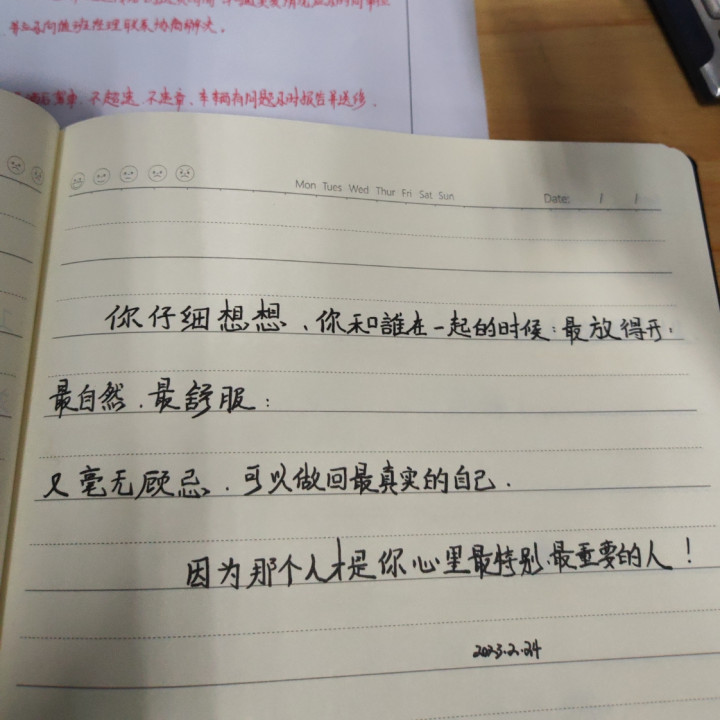 并及时向值班经理联系协商解决。
不超速、不违章、车辆有问题及时报告并送修.
Mon Tues Wed Thur Fri Sat Sun
Date: / /
你仔细想想、你和誰在一起的时候:最放得开,
最自然.最舒服:
又毫无顾忌、可以做回最真实的自己.
因为那个人才是你心里最特别、最重要的人!
2023.2.24